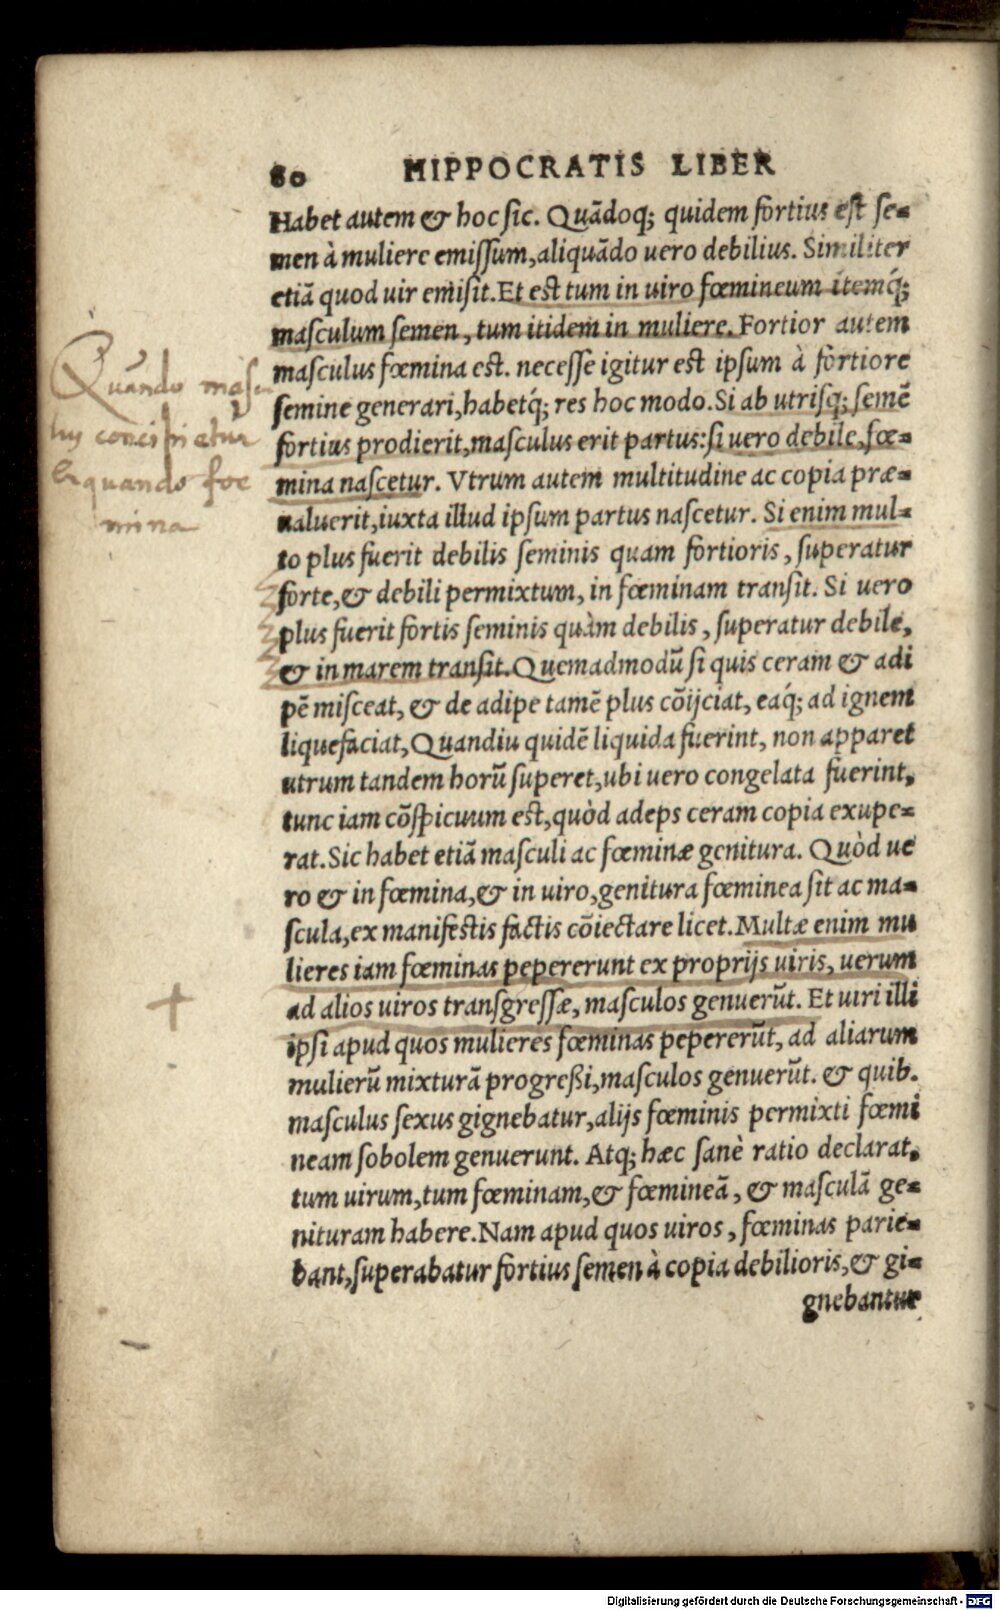 80 HIPPOCRATIS LIBER
Habet autem & hoc sic. Quādoq; quidem fortius est se-
men à muliere emissum, aliquādo vero debilius. Similiter
etiā quod uir emisit. Et est tum in uiro fœmineum itemq́;
masculum semen, tum itidem in muliere. Fortior autem
masculus fœmina est. necesse igitur est ipsum à fortiore
semine generari, habetq́; res hoc modo. Si ab utrisq; semē
fortius prodierit, masculus erit partus: si uero debile, fœ-
mina nascetur. Vtrum autem multitudine ac copia præ-
ualuerit, iuxta illud ipsum partus nascetur. Si enim mul-
to plus fuerit debilis seminis quam fortioris, superatur
forte, & debili permixtum, in fœminam transit. Si uero
plus fuerit fortis seminis quàm debilis, superatur debile,
& in marem transit. Quemadmodū si quis ceram & adi
pē misceat, & de adipe tamē plus cōijciat, eaq́; ad ignem
liquefaciat, Quandiu quidē liquida fuerint, non apparet
utrum tandem horū superet, ubi uero congelata fuerint,
tunc iam cōspicuum est, quòd adeps ceram copia exupe-
rat. Sic habet etiā masculi ac fœminæ genitura. Quòd ue
ro & in fœmina, & in uiro, genitura fœminea sit ac ma-
scula, ex manifestis factis cōiectare licet. Multæ enim mu
lieres iam fœminas pepererunt ex proprijs uiris, uerum
ad alios uiros transgressæ, masculos genuerūt. Et uiri illi
ipsi apud quos mulieres fœminas pepererūt, ad aliarum
mulierū mixturā progreßi, masculos genuerūt. & quib.
masculus sexus gignebatur, alijs fœminis permixti fœmi
neam sobolem genuerunt. Atq; hæc sanè ratio declarat,
tum uirum, tum fœminam, & fœmineā, & masculā ge-
nituram habere. Nam apud quos uiros, fœminas parie-
bant, superabatur fortius semen à copia debilioris, & gi-
gnebantur
Quando mascu
lus concipiatur
& quando foe
mina
Digitalisierung gefördert durch die Deutsche Forschungsgemeinschaft - DFG